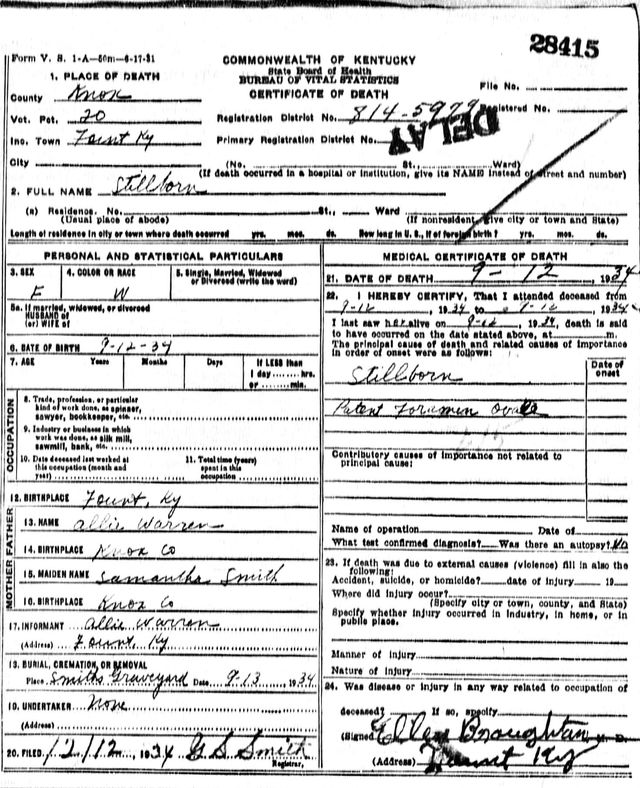 28415
Form V. S. 1-A—50m—6-17-31
COMMONWEALTH OF KENTUCKY
State Board of Health
BUREAU OF VITAL STATISTICS
CERTIFICATE OF DEATH
1. PLACE OF DEATH
File No.
County Knox
Registration District No. 814-5979
Registered No.
DELAY
Vot. Pct. 20
Inc. Town Fount Ky
Primary Registration District No.
City (No. St., Ward)
(If death occurred in a hospital or institution, give its NAME instead of street and number)
2. FULL NAME Stillborn
(a) Residence. No. St., Ward
(Usual place of abode) (If nonresident give city or town and State)
Length of residence in city or town where death occurred yrs. mos. ds. How long in U. S., if of foreign birth? yrs. mos. ds.
PERSONAL AND STATISTICAL PARTICULARS
3. SEX 4. COLOR OR RACE 5. Single, Married, Widowed
or Divorced (write the word)
F W
5a. If married, widowed, or divorced
HUSBAND of
(or) WIFE of
6. DATE OF BIRTH 9-12-34
7. AGE Years Months Days If LESS than
1 day ........ hrs.
or ........ min.
OCCUPATION
8. Trade, profession, or particular
kind of work done, as spinner,
sawyer, bookkeeper, etc.
9. Industry or business in which
work was done, as silk mill,
sawmill, bank, etc.
10. Date deceased last worked at
this occupation (month and
year)
11. Total time (years)
spent in this
occupation
12. BIRTHPLACE Fount, Ky
FATHER
13. NAME Allie Warren
14. BIRTHPLACE Knox Co
MOTHER
15. MAIDEN NAME Samantha Smith
16. BIRTHPLACE Knox Co
17. INFORMANT Allie Warren
(Address) Fount, Ky
18. BURIAL, CREMATION, OR REMOVAL
Place Smiths Graveyard Date 9-13, 1934
19. UNDERTAKER None
(Address)
20. FILED 12/12, 1934 G S Smith
Registrar.
MEDICAL CERTIFICATE OF DEATH
21. DATE OF DEATH 9-12, 1934
22. I HEREBY CERTIFY, That I attended deceased from
9-12, 1934 to 9-12, 1934
I last saw her alive on 9-12, 1934, death is said
to have occurred on the date stated above, at m.
The principal cause of death and related causes of importance
in order of onset were as follows:
Date of
onset
Stillborn
Patent Foramen Ovale
Contributory causes of importance not related to
principal cause:
Name of operation Date of
What test confirmed diagnosis? Was there an autopsy? No
23. If death was due to external causes (violence) fill in also the
following:
Accident, suicide, or homicide? date of injury 19
Where did injury occur?
(Specify city or town, county, and State)
Specify whether injury occurred in industry, in home, or in
public place.
Manner of injury
Nature of injury
24. Was disease or injury in any way related to occupation of
deceased? If so, specify
(Signed) Ellen Broughton M. D.
(Address) Ky